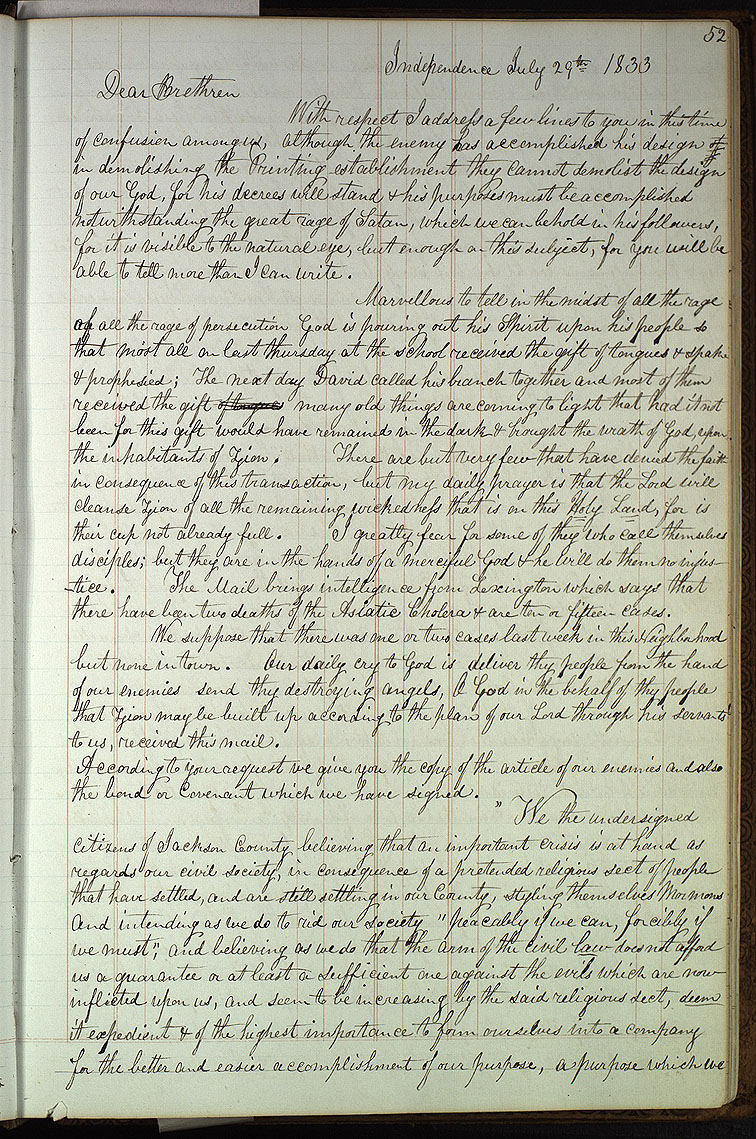 52
Independence July 29th 1833
Dear Brethren
With respect I address a few lines to you in this time
of confusion among us, although the enemy has accomplished his design of
in demolishing the Printing establishment they cannot demolish the design
of our God, for his decrees will stand & his purposes must be accomplished
notwithstanding the great rage of Satan, which we can behold in his followers,
for it is visible to the natural eye, but enough on this subject, for you will be
able to tell more than I can write.
Marvellous to tell in the midst of all the rage
of all the rage of persecution God is pouring out his Spirit upon his people so
that most all on last thursday at the school received the gift of tongues & spake
& prophesied; The next day David called his branch together and most of them
received the gift of tongues many old things are coming to light that had it not
been for this gift would have remained in the dark & brought the wrath of God, upon
the inhabitants of Zion. There are but very few that have denied the faith
in consequence of this transaction, but my daily prayer is that the Lord will
cleanse Zion of all the remaining wickedness that is on this Holy Land, for is
their cup not already full. I greatly fear for some of they who call themselves
disciples; but they are in the hands of a merciful God & he will do them no injus-
tice. The Mail brings intelligence from Lexington which says that
there have been two deaths of the Asiatic Cholera & are ten or fifteen cases.
We suppose that there was one or two cases last week in this Neighborhood
but none in town. Our daily cry to God is deliver thy people from the hand
of our enemies send thy destroying angels, O God in the behalf of thy people
that Zion may be built up according to the plan of our Lord through his servants
to us, received this mail.
According to your request we give you the copy of the article of our enemies and also
the bond or Covenant which we have signed.
" We the undersigned
citizens of Jackson County believing that an important crisis is at hand as
regards our civil society, in consequence of a pretended religious sect of people
that have settled, and are still settling in our County, styling themselves Mormons
and intending as we do to rid our society "peacably if we can, forcibly if
we must", and believing as we do that the arm of the civil law does not afford
us a guarantee or at least a sufficient one against the evils which are now
inflicted upon us, and seem to be increasing by the said religious sect, deem
it expedient & of the highest importance to form ourselves into a company
for the better and easier accomplishment of our purpose, a purpose which we